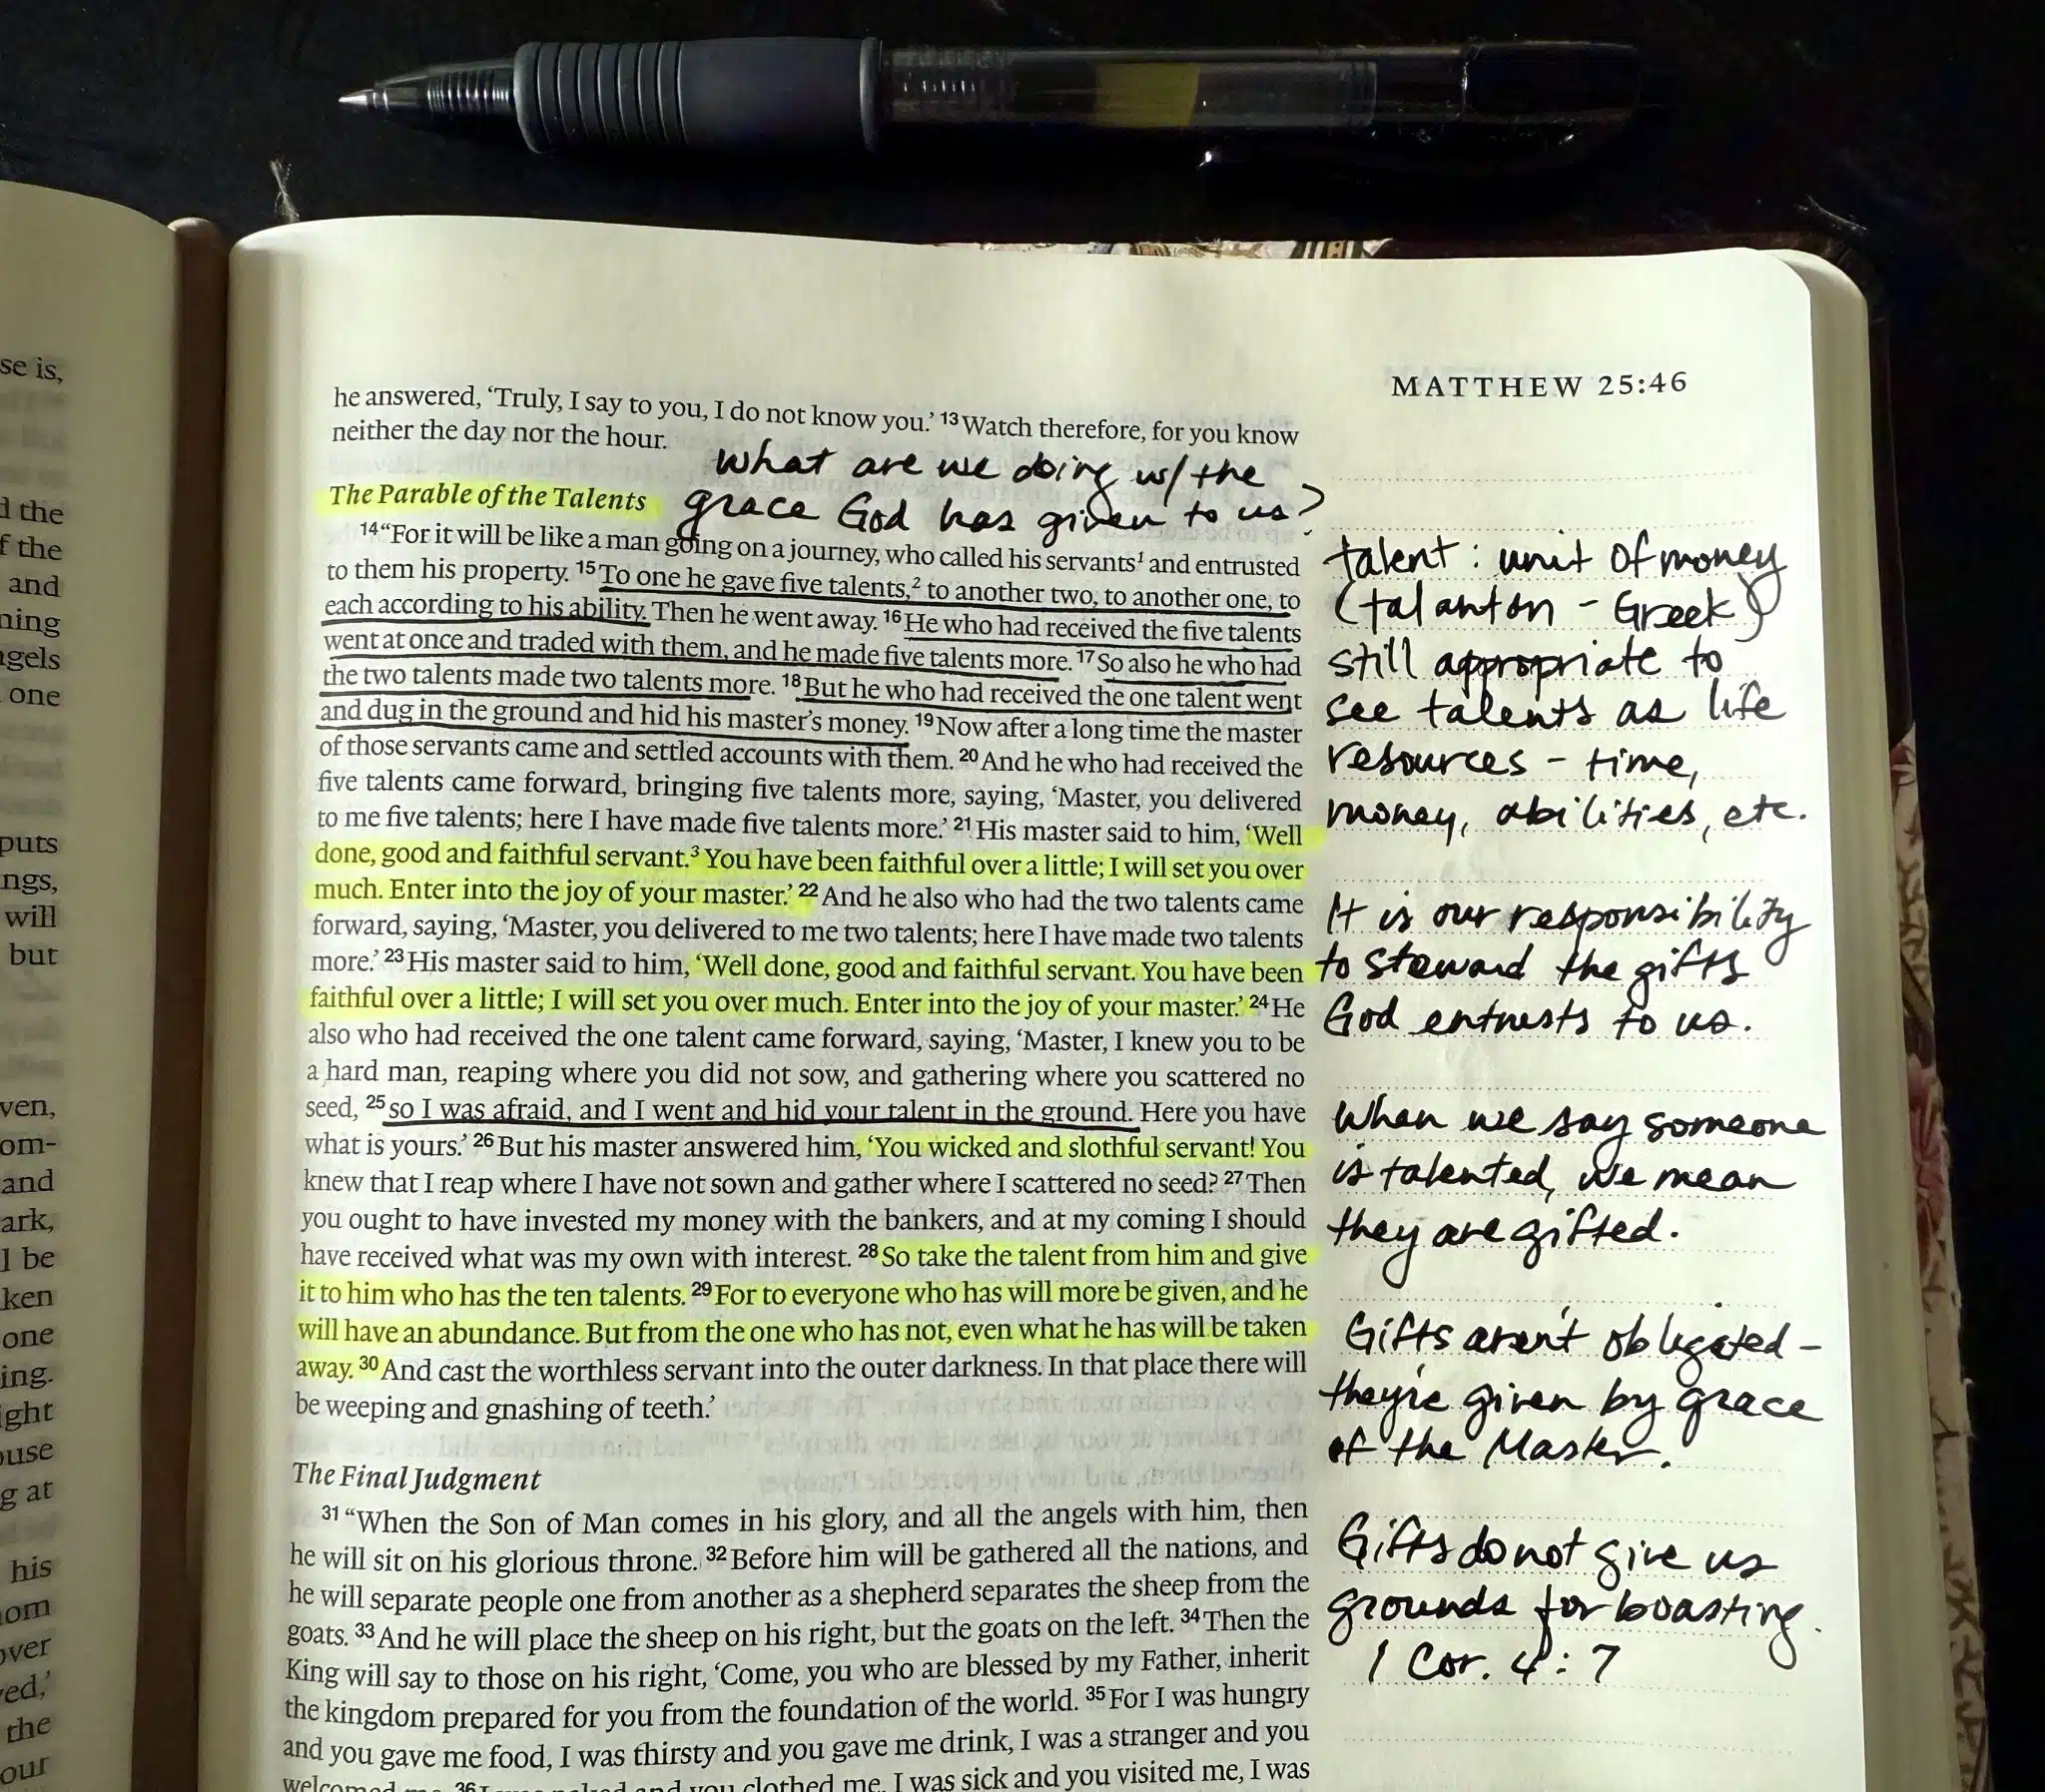 se is,
d the
f the
and
ning
ngels
one
puts
ngs,
will
but
ven,
om-
and
ark,
l be
ken
one
ing.
ight
ouse
g at
his
nom
over
red,'
the
our
MATTHEW 25:46
he answered, ‘Truly, I say to you, I do not know you.’ 13 Watch therefore, for you know
neither the day nor the hour.
what are we doing w/ the
grace God has given to us?
The Parable of the Talents
14 “For it will be like a man going on a journey, who called his servants1 and entrusted
to them his property. 15 To one he gave five talents,2 to another two, to another one, to
each according to his ability. Then he went away. 16 He who had received the five talents
went at once and traded with them, and he made five talents more. 17 So also he who had
the two talents made two talents more. 18 But he who had received the one talent went
and dug in the ground and hid his master’s money. 19 Now after a long time the master
of those servants came and settled accounts with them. 20 And he who had received the
five talents came forward, bringing five talents more, saying, ‘Master, you delivered
to me five talents; here I have made five talents more.’ 21 His master said to him, ‘Well
done, good and faithful servant.3 You have been faithful over a little; I will set you over
much. Enter into the joy of your master.’ 22 And he also who had the two talents came
forward, saying, ‘Master, you delivered to me two talents; here I have made two talents
more.’ 23 His master said to him, ‘Well done, good and faithful servant. You have been
faithful over a little; I will set you over much. Enter into the joy of your master.’ 24 He
also who had received the one talent came forward, saying, ‘Master, I knew you to be
a hard man, reaping where you did not sow, and gathering where you scattered no
seed, 25 so I was afraid, and I went and hid your talent in the ground. Here you have
what is yours.’ 26 But his master answered him, ‘You wicked and slothful servant! You
knew that I reap where I have not sown and gather where I scattered no seed? 27 Then
you ought to have invested my money with the bankers, and at my coming I should
have received what was my own with interest. 28 So take the talent from him and give
it to him who has the ten talents. 29 For to everyone who has will more be given, and he
will have an abundance. But from the one who has not, even what he has will be taken
away. 30 And cast the worthless servant into the outer darkness. In that place there will
be weeping and gnashing of teeth.’
The Final Judgment
31 “When the Son of Man comes in his glory, and all the angels with him, then
he will sit on his glorious throne. 32 Before him will be gathered all the nations, and
he will separate people one from another as a shepherd separates the sheep from the
goats. 33 And he will place the sheep on his right, but the goats on the left. 34 Then the
King will say to those on his right, ‘Come, you who are blessed by my Father, inherit
the kingdom prepared for you from the foundation of the world. 35 For I was hungry
and you gave me food, I was thirsty and you gave me drink, I was a stranger and you
welcomed me, 36 I was naked and you clothed me, I was sick and you visited me, I was
talent: unit of money
(talanton - Greek)
still appropriate to
see talents as life
resources - time,
money, abilities, etc.
It is our responsibility
to steward the gifts
God entrusts to us.
When we say someone
is talented, we mean
they are gifted.
Gifts aren't obligated -
they're given by grace
of the Master.
Gifts do not give us
grounds for boasting.
1 Cor. 4:7